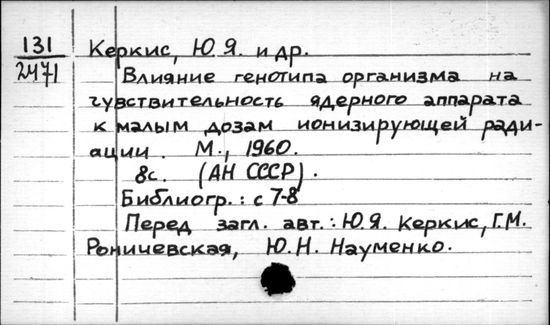 131
2471
Керкис, Ю.Я. и др.
Влияние генотипа организма на
чувствительность ядерного аппарата
к малым дозам ионизирующей ради-
ации. М., 1960.
8с. (АН СССР).
Библиогр.: с 7-8
Перед загл. авт.: Ю.Я. Керкис, Г.М.
Роничевская, Ю.Н. Науменко.